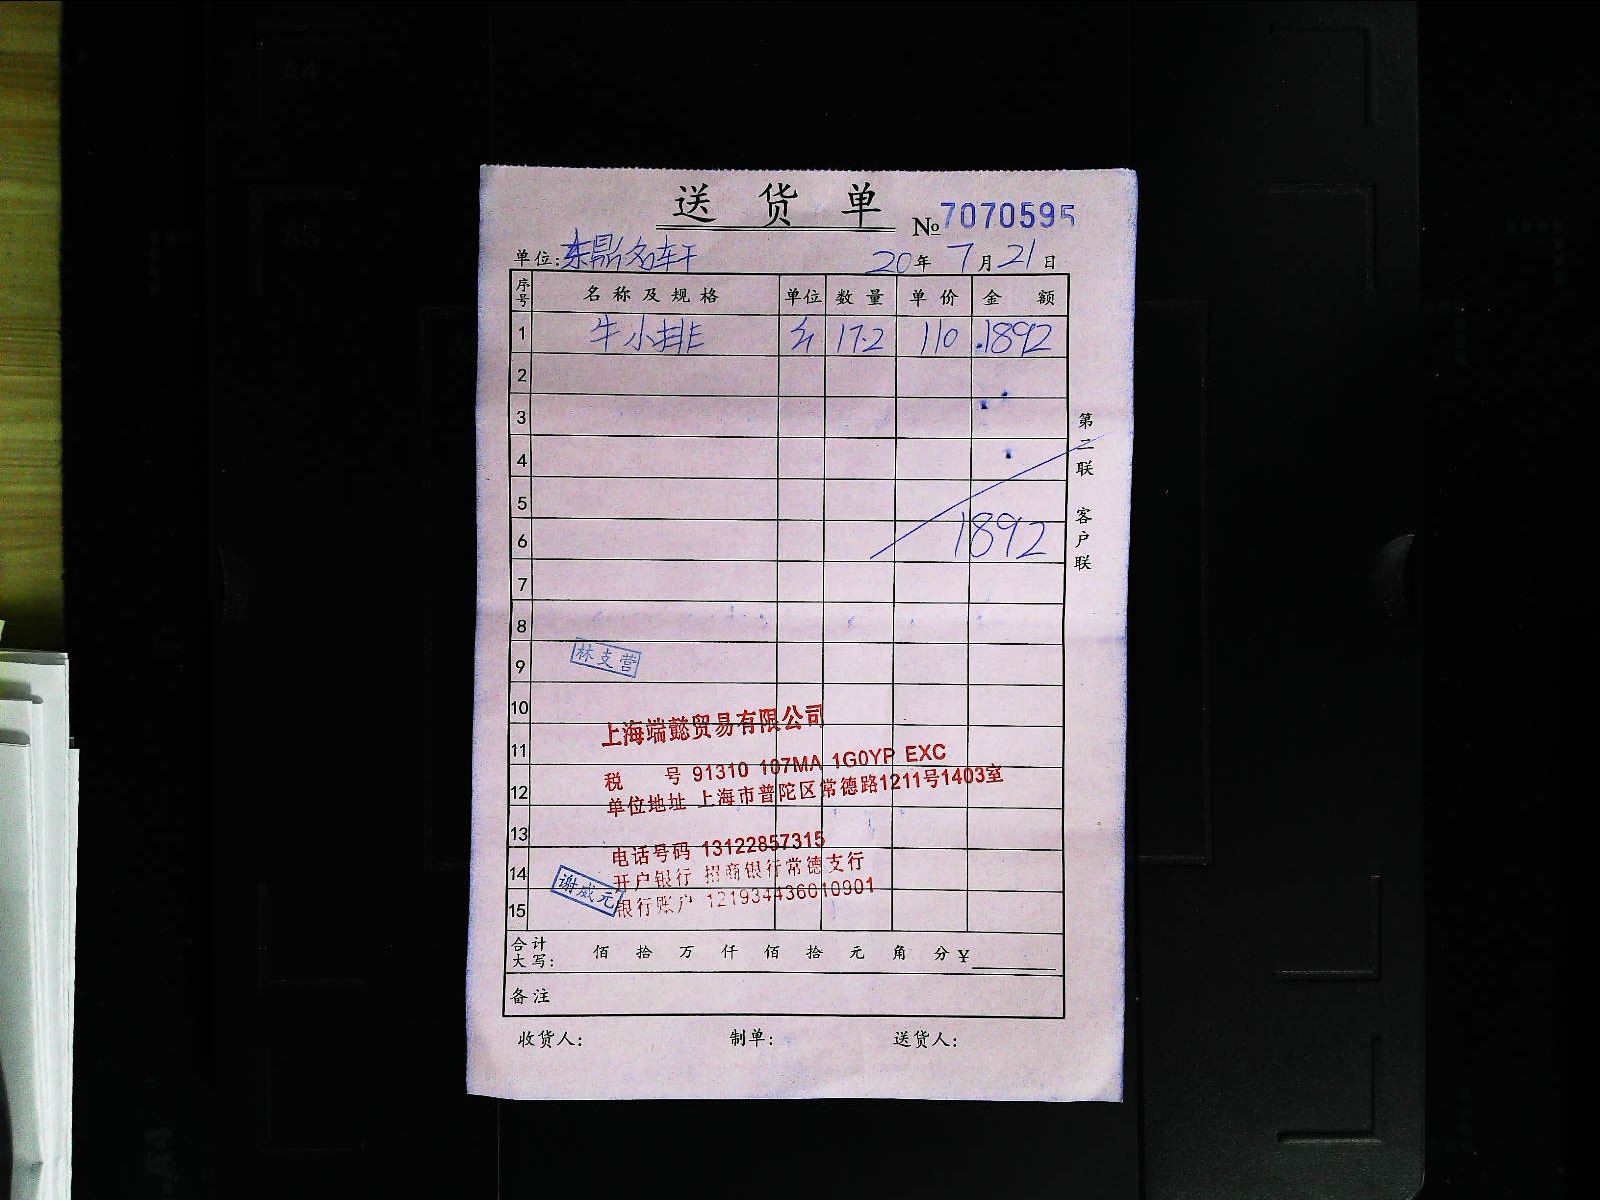 送货单
№7070595
单位:东鼎名轩 20年7月21日
序号 名称及规格 单位 数量 单价 金额
1 牛小排 17.2 110 1892
2
3
4
5
6 1892
7
8
9 林支营
10
11
12
13
14
15
上海端懿贸易有限公司
税 号 91310 107MA 1G0YP EXC
单位地址 上海市普陀区常德路1211号1403室
电话号码 13122857315
开户银行 招商银行常德支行
谢咸元
银行账户 121934436010901
合计大写: 佰拾万仟佰拾元角分¥
备注
收货人: 制单: 送货人:
第二联 客户联